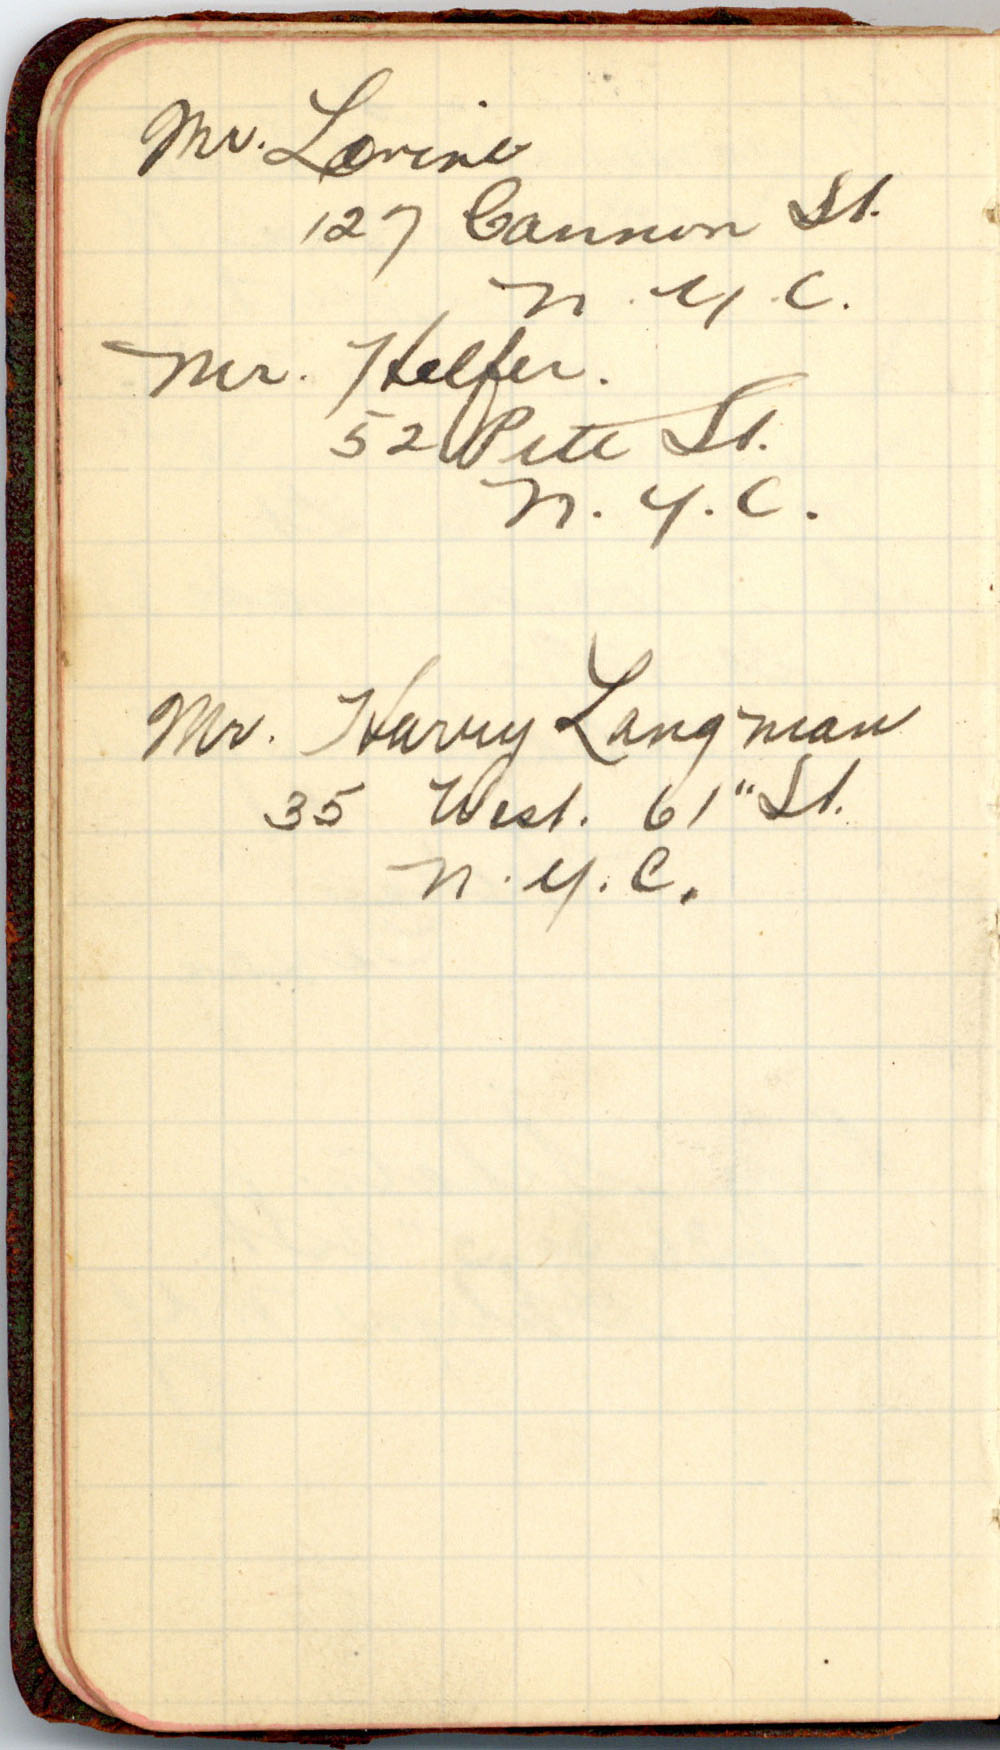 Mr. Lovine
127 Cannon St.
N. Y. C.
Mr. Helfer.
52 Pitt St.
N. Y. C.
Mr. Harry Langman
35 West. 61" St.
N. Y. C.